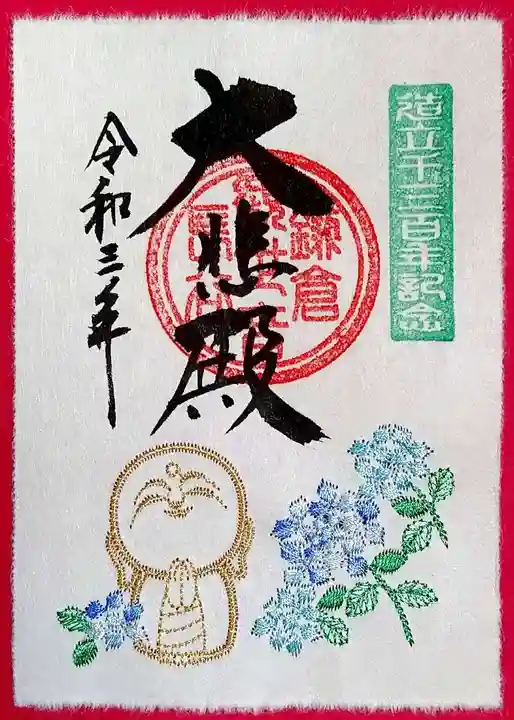 造立千三百年記念
大悲殿
鎌倉
令和三年